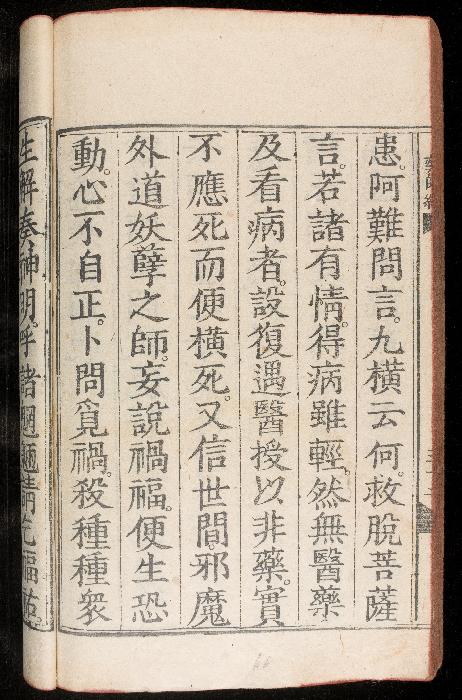 患。阿難問言。九橫云何。救脫菩薩
言。若諸有情。得病雖輕。然無醫藥
及看病者。設復遇醫授以非藥。實
不應死而便橫死。又信世間。邪魔
外道妖孽之師。妄說禍福。便生恐
動。心不自正。卜問覓禍。殺種種衆
生解奏神明。呼諸魍魎。請乞福祐。